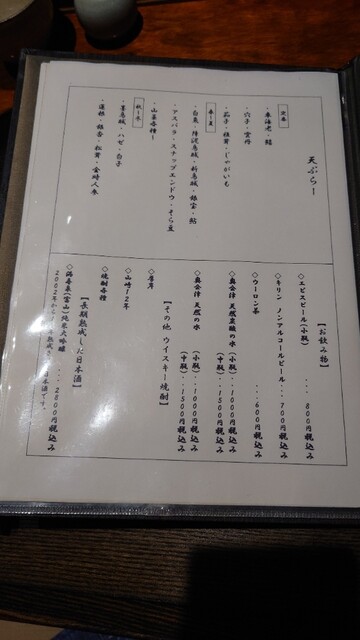 天ぷら
定番
・車海老・鱚
・穴子・雲丹
・茄子・椎茸・じゃがいも
春～夏
・白魚・稚鮎・銀宝・鮎
・アスパラ・スナップエンドウ・そら豆
・山菜各種
秋～冬
・墨烏賊・ハゼ・白子
・蓮根・銀杏・松茸・金時人参
【お飲み物】
◇エビスビール(小瓶) ... 800円税込み
◇キリン ノンアルコールビール... 700円税込み
◇ウーロン茶 ... 600円税込み
◇奥会津 天然炭酸の水 (小瓶)..1000円税込み
(中瓶)..1500円税込み
◇奥会津 天然の水 (小瓶)..1000円税込み
(中瓶)..1500円税込み
【その他 ウイスキー焼酎】
◇山崎12年
◇焼酎各種
【長期熟成した日本酒】
(富山)純米大吟醸 ... 2800円税込み
2002年から
日本酒です。